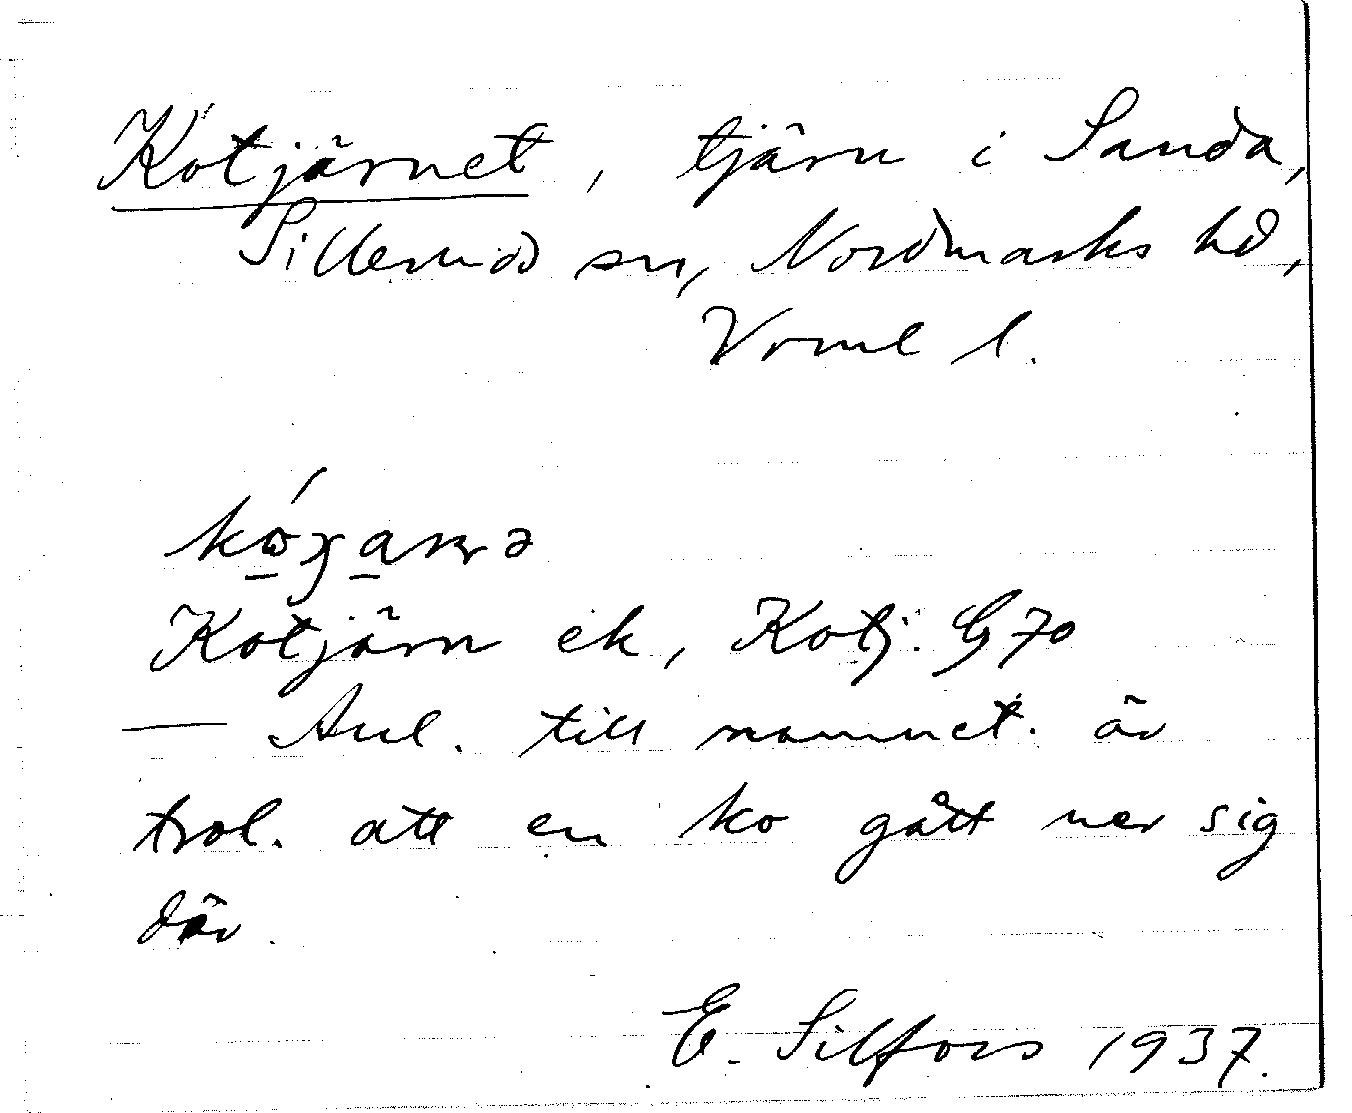 Kotjärnet, tjärn i Sanda,
Sillerud sn, Nordmarks hd,
Vrml l.
Kotjärn ek, Kotj. G 70
— Anl. till namnet. är
trol. att en ko gått ner sig
där.
E. Silfors 1937.